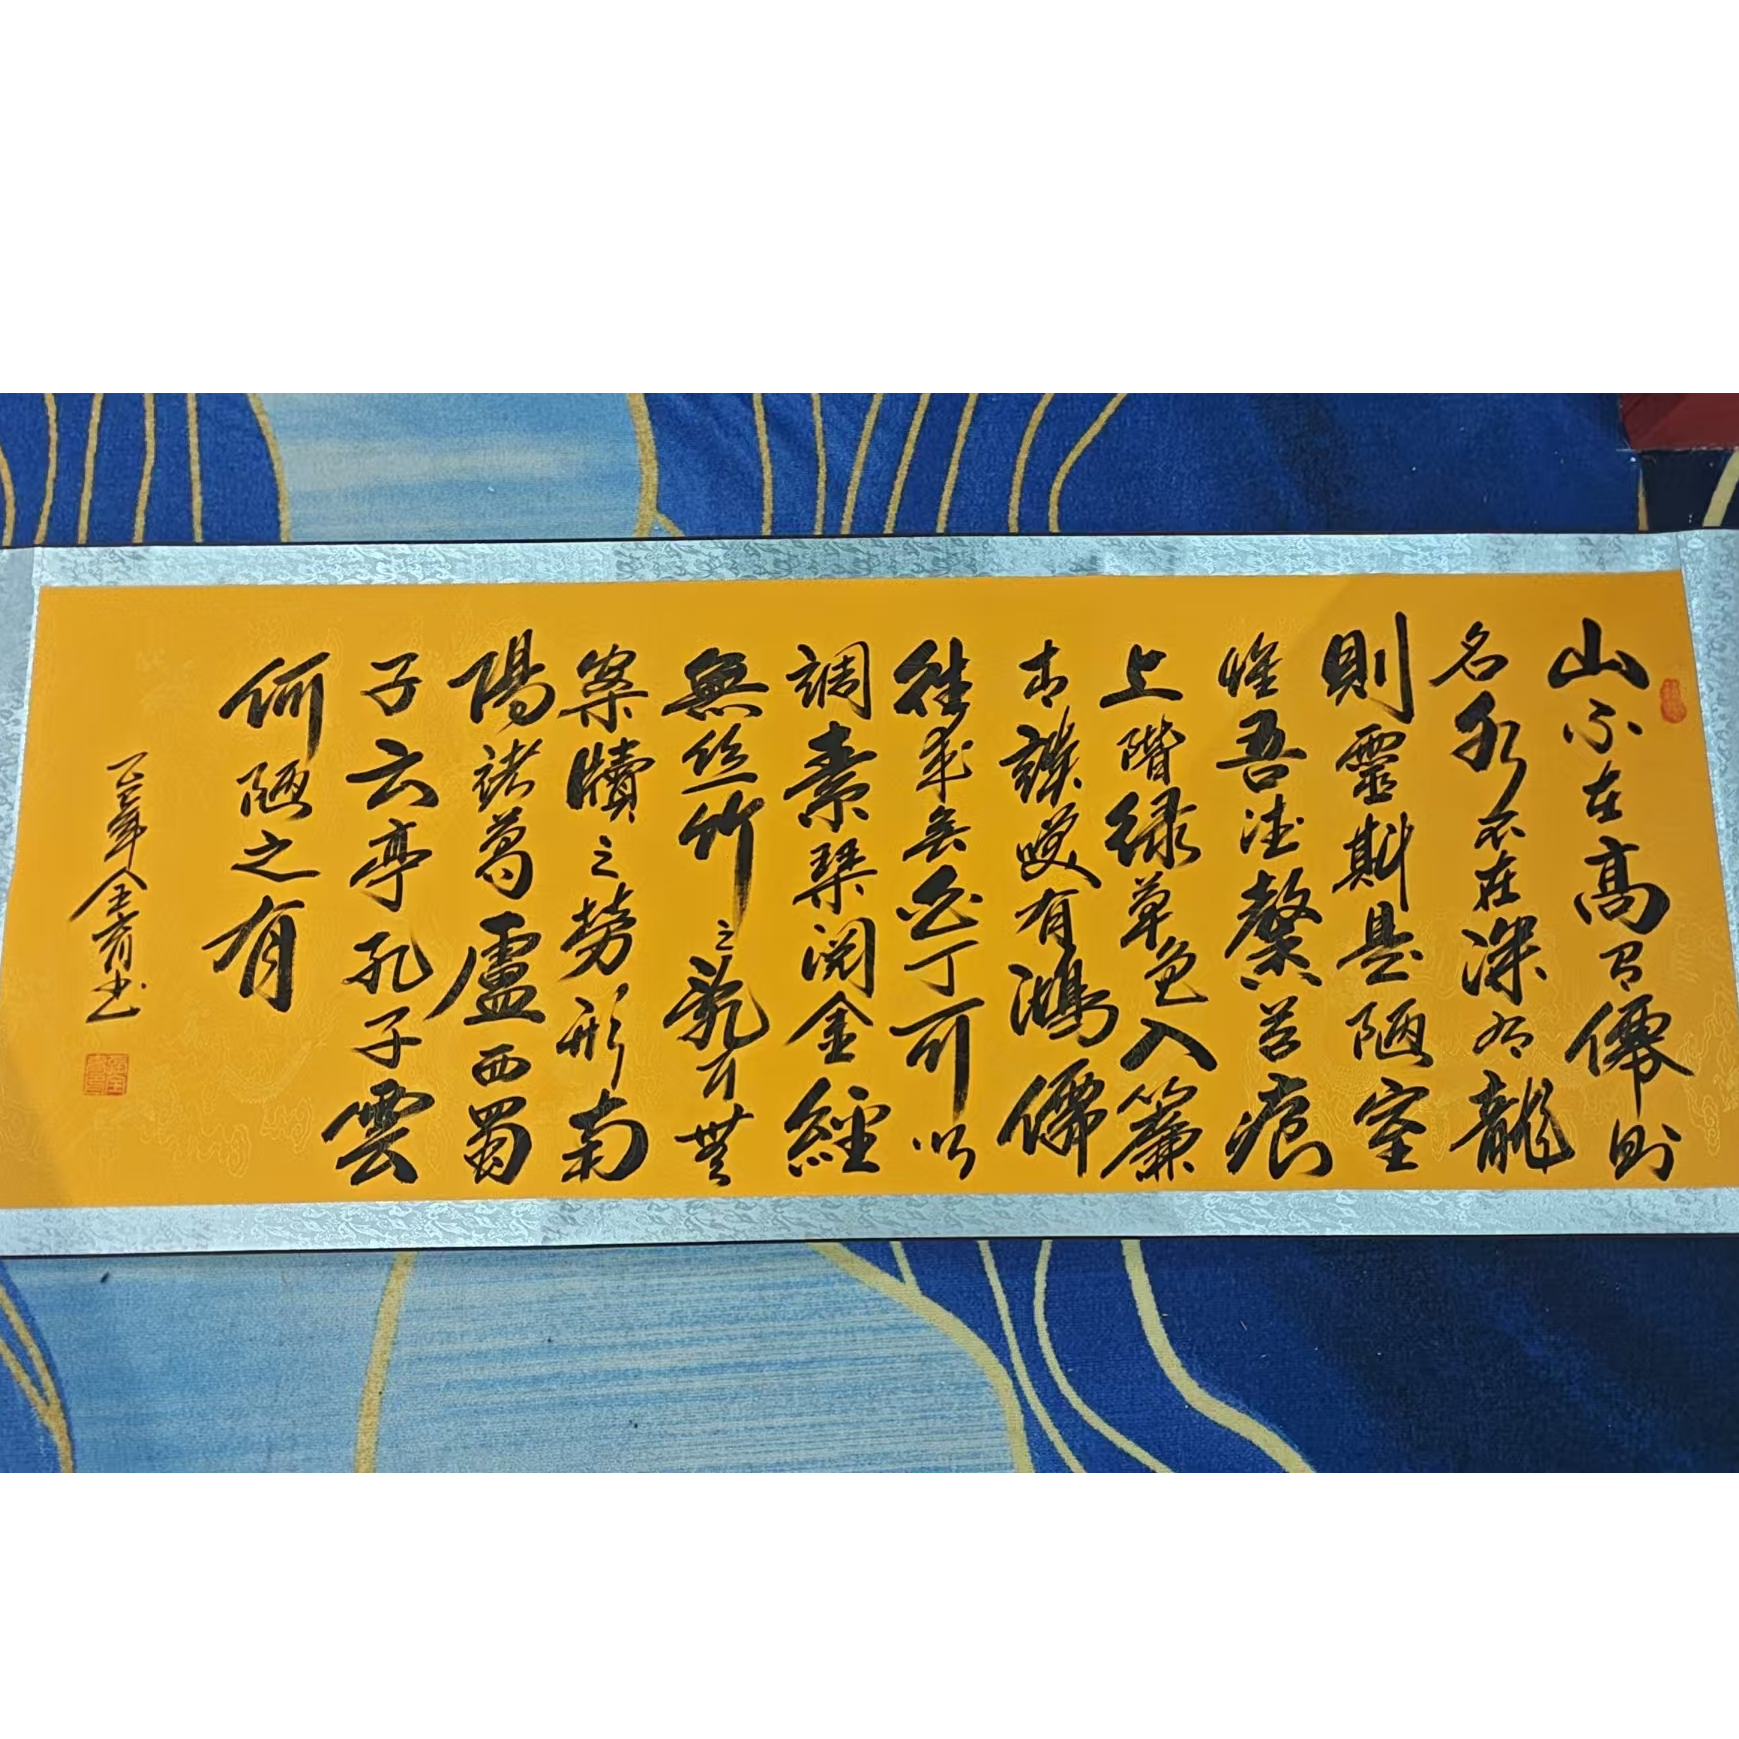 山不在高有僊則
名水不在深有龍
則靈斯是陋室
惟吾德馨苔痕
上階緑草色入簾
青談笑有鴻儒
往來無白丁可以
調素琴閱金經
無丝竹之亂耳無
案牘之勞形南
陽諸葛廬西蜀
子云亭孔子雲
何陋之有
乙巳年